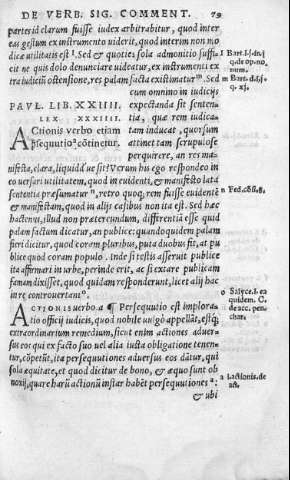 DE VERB. SIG. COMMENT. 79
partes id clarum fuisse iudex arbitrabitur, quod inter
eas gestum ex instrumento uiderit, quod interim non mo
dica utilitatis est l. Sed & quoties sola admonitio suffi-
cit ne quis dolo denunciare uideatur, ex instrumenti ex
tra iudiciū ostensione, res palam facta existimatur m. Sed de
cum omnino in iudicijs
expectanda sit senten-
tia, qua rem iudica-
tam inducat, quorsum
attinet tam scrupulose
perquirere, an res ma-
PAVL. LIB. XXIIII.
LEX. XXXIIII.
Actionis verbo etiam
ꝑsequutio a cōtinetur.
nifesta, clara, liquidāue sit? Verum his ego respondeo in
eo uersari utilitatem, quod in euidenti, & manifesto lata
sententia præsumatur n, retro quoq; rem fuisse euidentē
& manifestam, quod in alijs casibus non ita est. Sed hæc
hactenus, illud non prætereundum, differentiā esse quid
palam factum dicatur, an publice: quandoquidem palam
fieri dicitur, quod coram pluribus, puta duobus fit, at pu
blice quod coram populo. Inde si testis asseruit publice
ita affirmari in urbe, perinde erit, ac si extare publicam
famam dixisset, quod quidam responderunt, licet alij hac
in re controuertant o.
ACTIONIS uerbo. a ¶ Persequutio est implora-
tio officij iudicis, quod nobile uulgò appellāt, estq́;
extraordinarium remedium, sicut enim actiones aduer-
sus eos qui ex facto suo uel alia iusta obligatione tenen-
tur, cōpetūt, ita persequutiones aduersus eos dātur, qui
sola æquitate, et quod dicitur de bono, & æquo sunt ob
noxij, quare harū actionū instar habēt persequutiones a:
& ubi
n Fed. cōs. 8.
o Salyce. l. ea
quidem. C.
de acc.
a l. actionis. de
act.